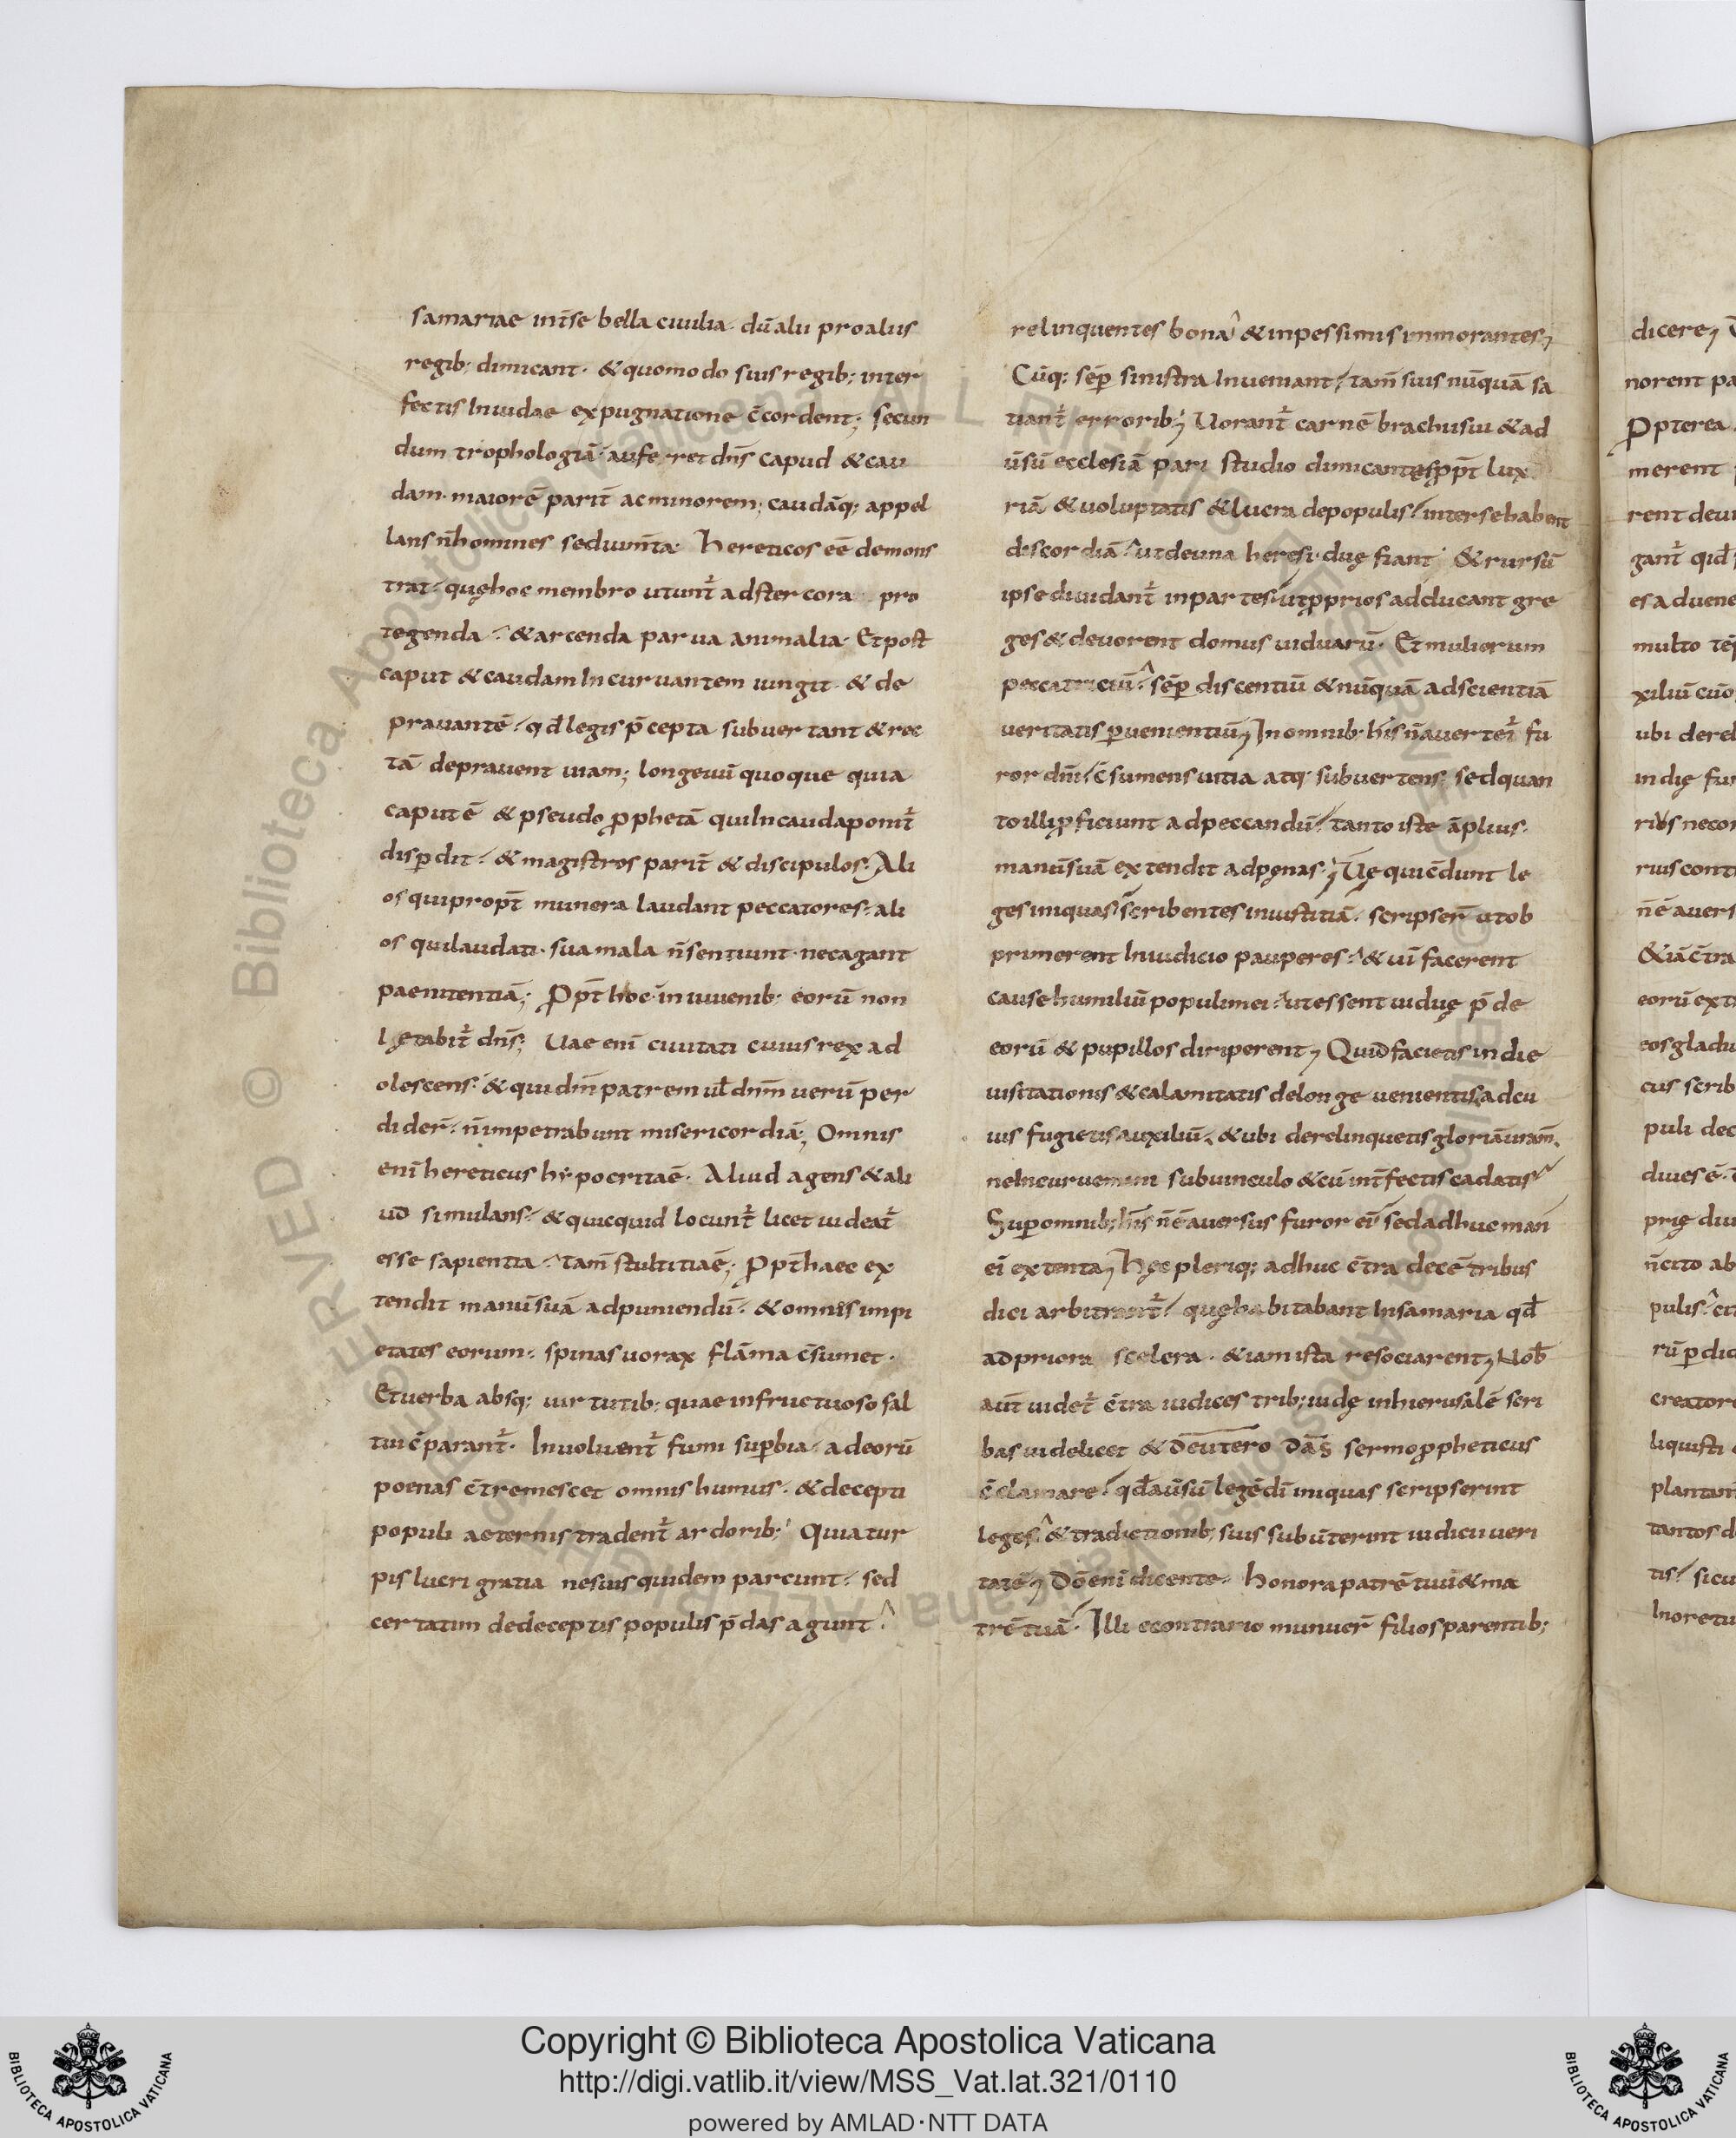 samariae int̄se bella ciuilia· dū alii pro aliis
regib; dimicant· & quomodo suis regib; inter
fectis In iudae expugnatione c̄cordent; secun
dum trophologiā· auferret dn̄s capud & cau
dam· maiorē parit̄ ac minorem; caudāq; appel
lans n̄ homines sed iumn̄ta· hereticos eē demons
trat· quę hoc membro utunt̄ ad stercora pro
tegenda· & arcenda parua animalia· Et post
caput & caudam Incuruantem iungit· & de
prauantē· qđ legis p̄cepta subuertant & rec
tā deprauent uiam; longeuū quoque quia
caput ē & pseudo ꝓphetā qui In cauda ponit̄
disꝑdit· & magistros parit̄ & discipulos· Ali
os qui propt̄ munera laudant peccatores· ali
os qui laudati· sua mala n̄ sentiunt· nec agant
paenitentiā; Ꝓpt̄ hoc· in iuuenib; eorū non
lętabit̄ dn̄s; Uae eni ciuitati cuius rex ad
olescens· & qui dm̄ patrem ul̄ dnm̄ uerū per
dider̄· n̄ impetrabunt misericordiā; Omnis
enī hereticus hypocrita ē· Aliud agens & ali
ud simulans· & quicquid locunt̄ licet uideat̄
esse sapientia· tam̄ stultitia ē; Ꝓpt̄ haec ex
tendit manū suā ad puniendū· & omnis impi
etates eorum· spinas uorax flāma c̄sumet·
Et uerba absq; uirtutib; quae infructuoso sal
tui c̄parant̄· Inuoluent̄ fumi suꝑbia· ad eorū
poenas c̄tremescet omnis humus· & decepti
populi aeternis tradent̄ ardorib; Quia tur
pis lucri gratia ne suis quidem parcunt· sed
certatim de deceptis populis p̄das agunt·
relinquentes bona & in pessimis inmorantes;
Cūq; sēp sinistra Inueniant· tam̄ suis nūquā sa
tiant̄ errorib; Uorant̄ carnē brachii sui & ad
ūsū ecclesiā pari studio dimicantes ꝓpt̄ lux
riā & uoluptatis & lucra de populis· inter se habent
discordiā· ut de una heresi· duę fiant· & rursū
ipse diuidant̄ in partes· ut ꝓprios adducant gre
ges & deuorent domus uiduarū· Et mulierum
peccatriciū· sēp discentiū & nūquā ad scientiā
ueritatis ꝑuenientiū; In omnib· his n̄ auertet̄ fu
ror dnī· c̄sumens uitia atq· subuertens; sed quan
to illi ꝓficiunt ad peccandū· tanto iste āplius·
manū suā extendit ad pęnas·; Uę qui c̄dunt le
ges iniquas· scribentes iniustitiā· scripser̄ ut ob
primerent In iudicio pauperes· & uim facerent
cause humiliū populi mei· ut essent uiduę p̄de
eorū & pupillos diriperent; Quid facietis in die
uisitationis & calamitatis de longe uenientis, ad cu
ius fugietis auxiliū· & ubi derelinquetis gloriā uram̄·
ne Incuruemini sub uinculo & cū int̄fectis cadatis
Suꝑ omnib; his n̄ ē auersus furor ei· sed adhuc man
ei extenta; Hęc pleriq; adhuc c̄tra decē tribus
dici arbitrant̄· quę habitabant In samaria qđ
ad priora scelera· & iam ista resociarent; Nob̄
aut̄ uidet̄ c̄tra iudices trib; iudę in hierusalē scri
bas uidelicet & deutero dās sermo ꝓpheticus
c̄clamare· qđ aūsū legē dī iniquas scripserint
leges· & traditionib; suis subūterint iudicii ueri
tatē; Dō enī dicente· honora patrē tuū & ma
trē tuā· Illi econtrario munuer̄ filios parentib;
dicere;
norent pa
Ꝓpterea
merent
rent deui
gant̄ qid
es aduene
multo
xiliū cuo
ubi derel
in dię fur
rius necon
rius cont
n̄ ē auers
& iā c̄tra
eorū ext
eos gladiu
cus scrib
puli dec
diues ē·
prię diu
n̄ cito ab
pulis·
rū ꝑdic
creatore
liquisti
plantam
tantos d
tis· sicu
In ore tu
Copyright © Biblioteca Apostolica Vaticana
http://digi.vatlib.it/view/MSS_Vat.lat.321/0110
powered by AMLAD·NTT DATA
BIBLIOTECA APOSTOLICA VATICANA
BIBLIOTECA APOSTOLICA VATICANA